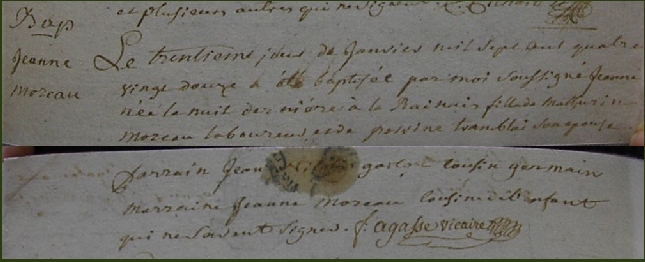 et plusieurs autres qui ne signent
Bap
Jeanne
Moreau
Le trentieme jour de Janvier mil sept cent quatre
vingt douze a été baptisée par moi soussigné Jeanne
née la nuit dernière à la fille de Mathurin
Moreau laboureur et de perrine tremblai son épouse
parrain Jean cousin germain
Marraine Jeanne Moreau cousine de l'enfant
qui ne savent signer. f. agasse vicaire